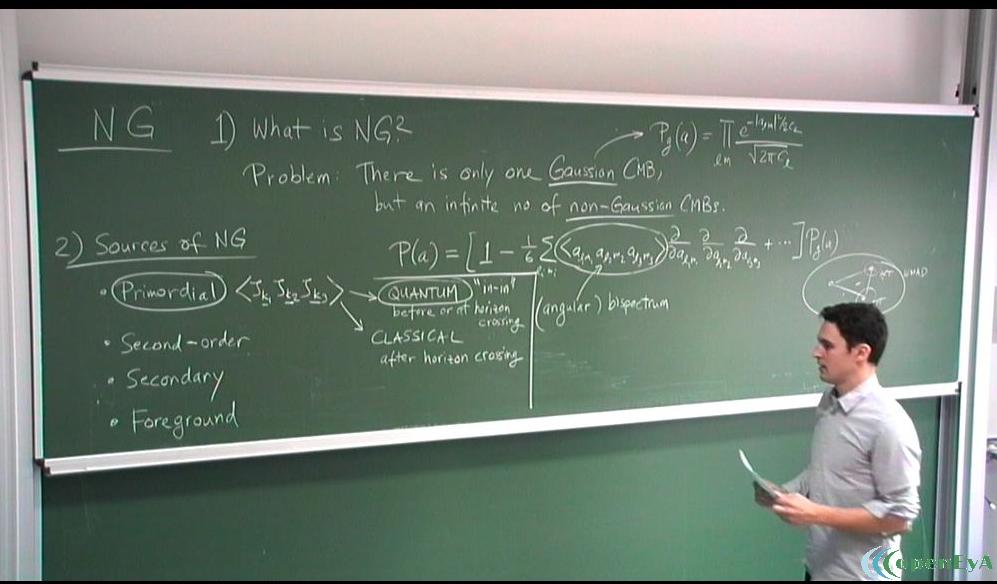 NG
1) What is NG?
P_g(a) = ∏_{lm} e^{-|a_{lm}|²/2C_l} / √(2πC_l)
Problem: There is only one Gaussian CMB,
but an infinite no of non-Gaussian CMBs.
2) Sources of NG
P(a) = [1 - 1/6 Σ_{l_i m_i} ⟨a_{l_1m_1} a_{l_2m_2} a_{l_3m_3}⟩ ∂/∂a_{l_1m_1} ∂/∂a_{l_2m_2} ∂/∂a_{l_3m_3} + ...] P_g(a)
(angular) bispectrum
• Primordial ⟨ζ_{k_1} ζ_{k_2} ζ_{k_3}⟩
QUANTUM "in-in"
before or at horizon
crossing
CLASSICAL
after horizon crossing
• Second-order
• Secondary
• Foreground
openEyA